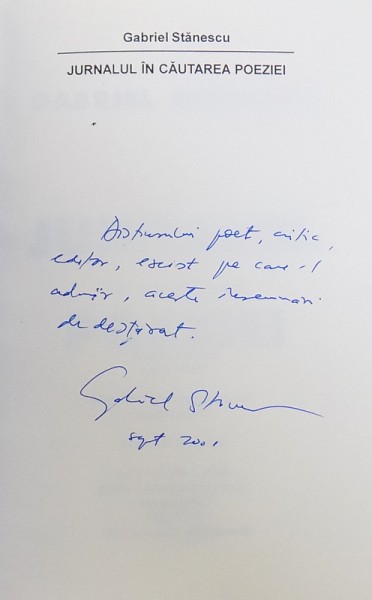 Gabriel Stănescu
JURNALUL ÎN CĂUTAREA POEZIEI
Distinsului poet, critic,
editor, eseist pe care-l
admir, aceste însemnări
de dezțărat.
Gabriel Stănescu
sept 2001